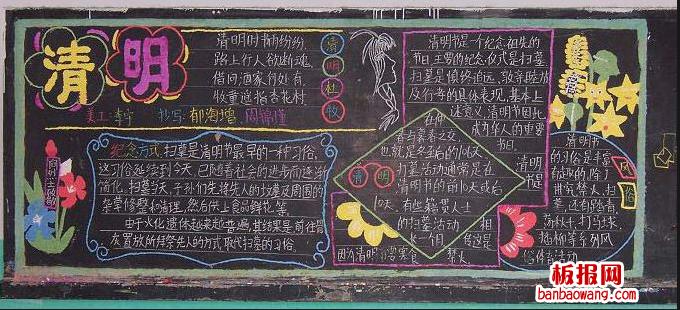 清明
清明时节雨纷纷
路上行人欲断魂
借问酒家何处有
牧童遥指杏花村
清
明
杜
牧
美工:李宁 抄写:郁海增
纪念方式:扫墓是清明节最早的一种习俗,
这习俗延续到今天,已随着社会的进步而逐渐
简化,扫墓当天,子孙们先将先人的坟墓及周围的
杂草修整和清理,然后供上食品鲜花等
由于火化遗体越来越普遍,其结果是前往骨
灰置放的拜祭先人的方式取代扫墓的习俗.
清明节是一个纪念祖先的
节日.主要的纪念仪式是扫墓
扫墓是慎终追远、敦亲睦族
及行孝的具体表现,基本上
述意义,清明节因此
成为华人的重要
节日.
清明
节是
在仲
春与暮春之交
也就是冬至后的106天.
扫墓活动通常是在
清明节的前10天或后
10天,有些籍贯人士
的扫墓活动
长一个月
清 明
清明节
的习俗是丰富
有趣的,除了
讲究禁火、扫
墓,还有踏青
荡秋千、打马球、
插柳等系列风
俗体育活动
风
俗
板报网
banbaowang.com